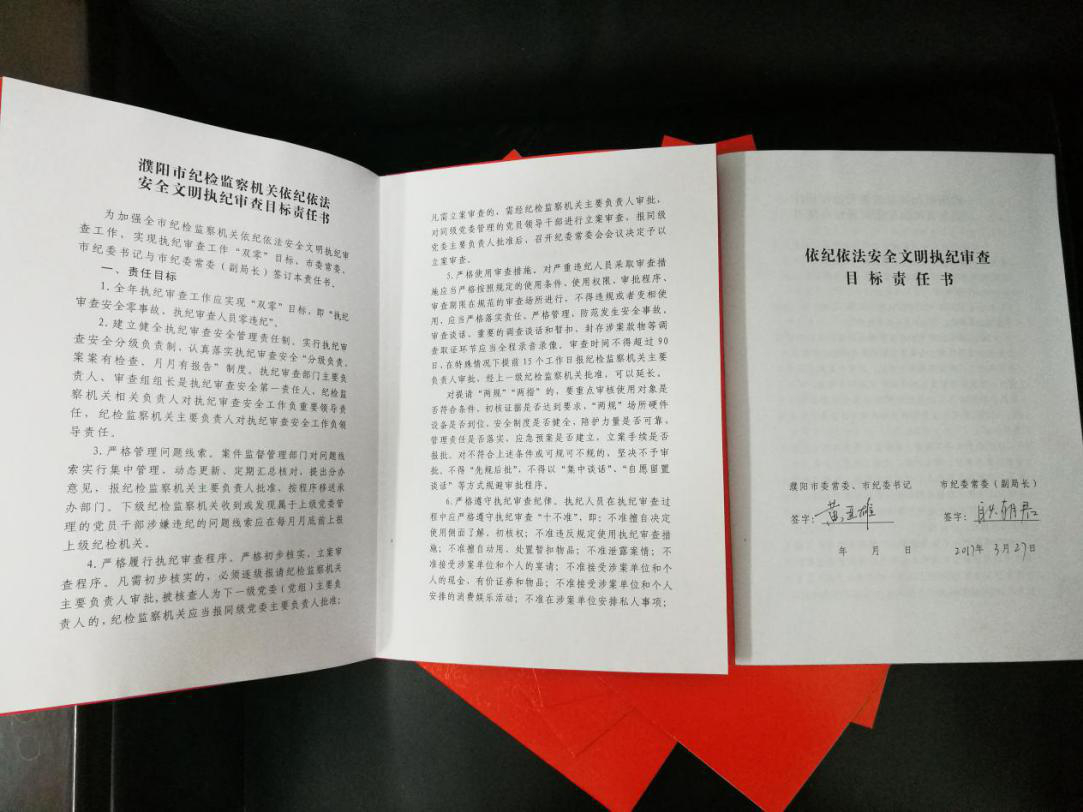 濮阳市纪检监察机关依纪依法
安全文明执纪审查目标责任书
为加强全市纪检监察机关依纪依法安全文明执纪审
查工作，实现执纪审查工作“双零”目标，市委常委、
市纪委书记与市纪委常委（副局长）签订本责任书。
一、责任目标
1.全年执纪审查工作应实现“双零”目标，即“执纪
审查安全零事故，执纪审查人员零违纪”。
2.建立健全执纪审查安全管理责任制，实行执纪审
查安全分级负责制，认真落实执纪审查安全“分级负责，
案案有检查、月月有报告”制度。执纪审查部门主要负
责人、审查组组长是执纪审查安全第一责任人，纪检监
察机关相关负责人对执纪审查安全工作负重要领导责
任，纪检监察机关主要负责人对执纪审查安全工作负领
导责任。
3.严格管理问题线索。案件监督管理部门对问题线
索实行集中管理、动态更新、定期汇总核对，提出分办
意见，报纪检监察机关主要负责人批准，按程序移送承
办部门。下级纪检监察机关收到或发现属于上级党委管
理的党员干部涉嫌违纪的问题线索应在每月月底前上报
上级纪检机关。
4.严格履行执纪审查程序。严格初步核实、立案审
查程序。凡需初步核实的，必须逐级报请纪检监察机关
主要负责人审批，被核查人为下一级党委（党组）主要负
责人的，纪检监察机关应当报同级党委主要负责人批准；
凡需立案审查的，需经纪检监察机关主要负责人审批，
对同级党委管理的党员领导干部进行立案审查，报同级
党委主要负责人批准后，召开纪委常委会会议决定予以
立案审查。
5.严格使用审查措施。对严重违纪人员采取审查措
施应当严格按照规定的使用条件、使用权限、审批程序、
审查期限在规范的审查场所进行，不得违规或者变相使
用，应当严格落实责任、严格管理，防范发生安全事故，
审查谈话、重要的调查谈话和暂扣、封存涉案款物等调
查取证环节应当全程录音录像。审查时间不得超过 90
日，在特殊情况下提前 15 个工作日报纪检监察机关主要
负责人审批，经上一级纪检监察机关批准，可以延长。
对提请“两规”“两指”的，要重点审核使用对象是
否符合条件，初核证据是否达到要求，“两规”场所硬件
设备是否到位，安全制度是否健全，陪护力量是否可靠，
管理责任是否落实，应急预案是否建立，立案手续是否
报批。对不符合上述条件或可规可不规的，坚决不予审
批。不得“先规后批”，不得以“集中谈话”、“自愿留置
谈话”等方式规避审批程序。
6.严格遵守执纪审查纪律。执纪人员在执纪审查过
程中应严格遵守执纪审查“十不准”，即：不准擅自决定
使用侧面了解、初核权；不准违反规定使用执纪审查措
施；不准擅自动用、处置暂扣物品；不准泄露案情；不
准接受涉案单位和个人的宴请；不准接受涉案单位和个
人的现金、有价证券和物品；不准接受涉案单位和个人
安排的消费娱乐活动；不准在涉案单位安排私人事项；
依纪依法安全文明执纪审查
目标责任书
濮阳市委常委、市纪委书记
市纪委常委（副局长）
签字：
签字：
年 月 日
2017年 3月27日